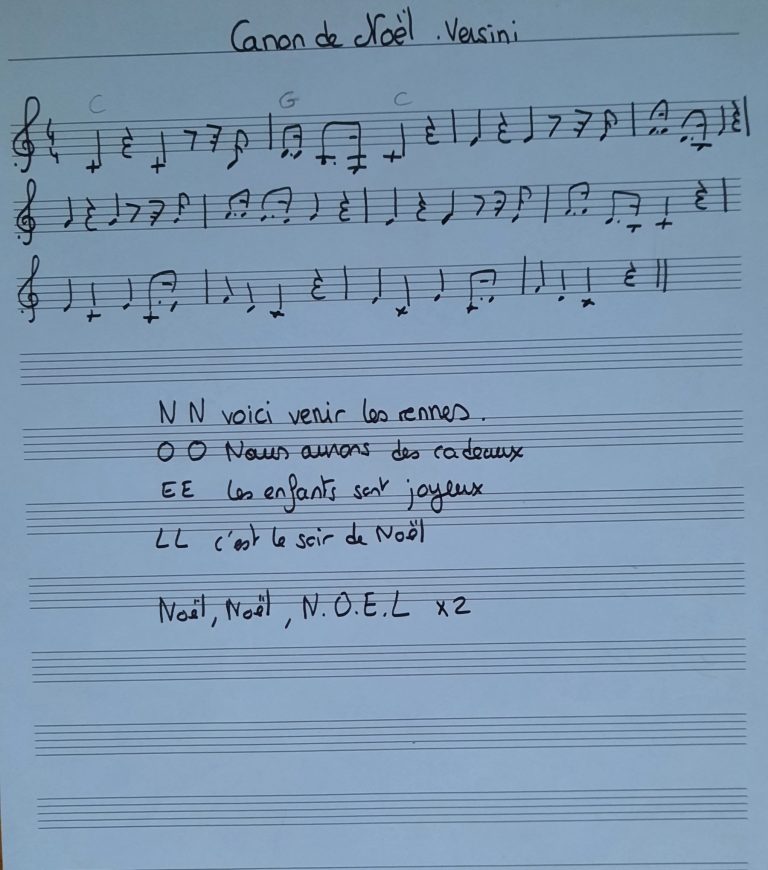 Canon de Noël . Versini
C G C
4
4
N N voici venir les rennes.
O O Nous aurons des cadeaux
EE les enfants sont joyeux
LL c'est le soir de Noël
Noël, Noël, N.O.E.L x2